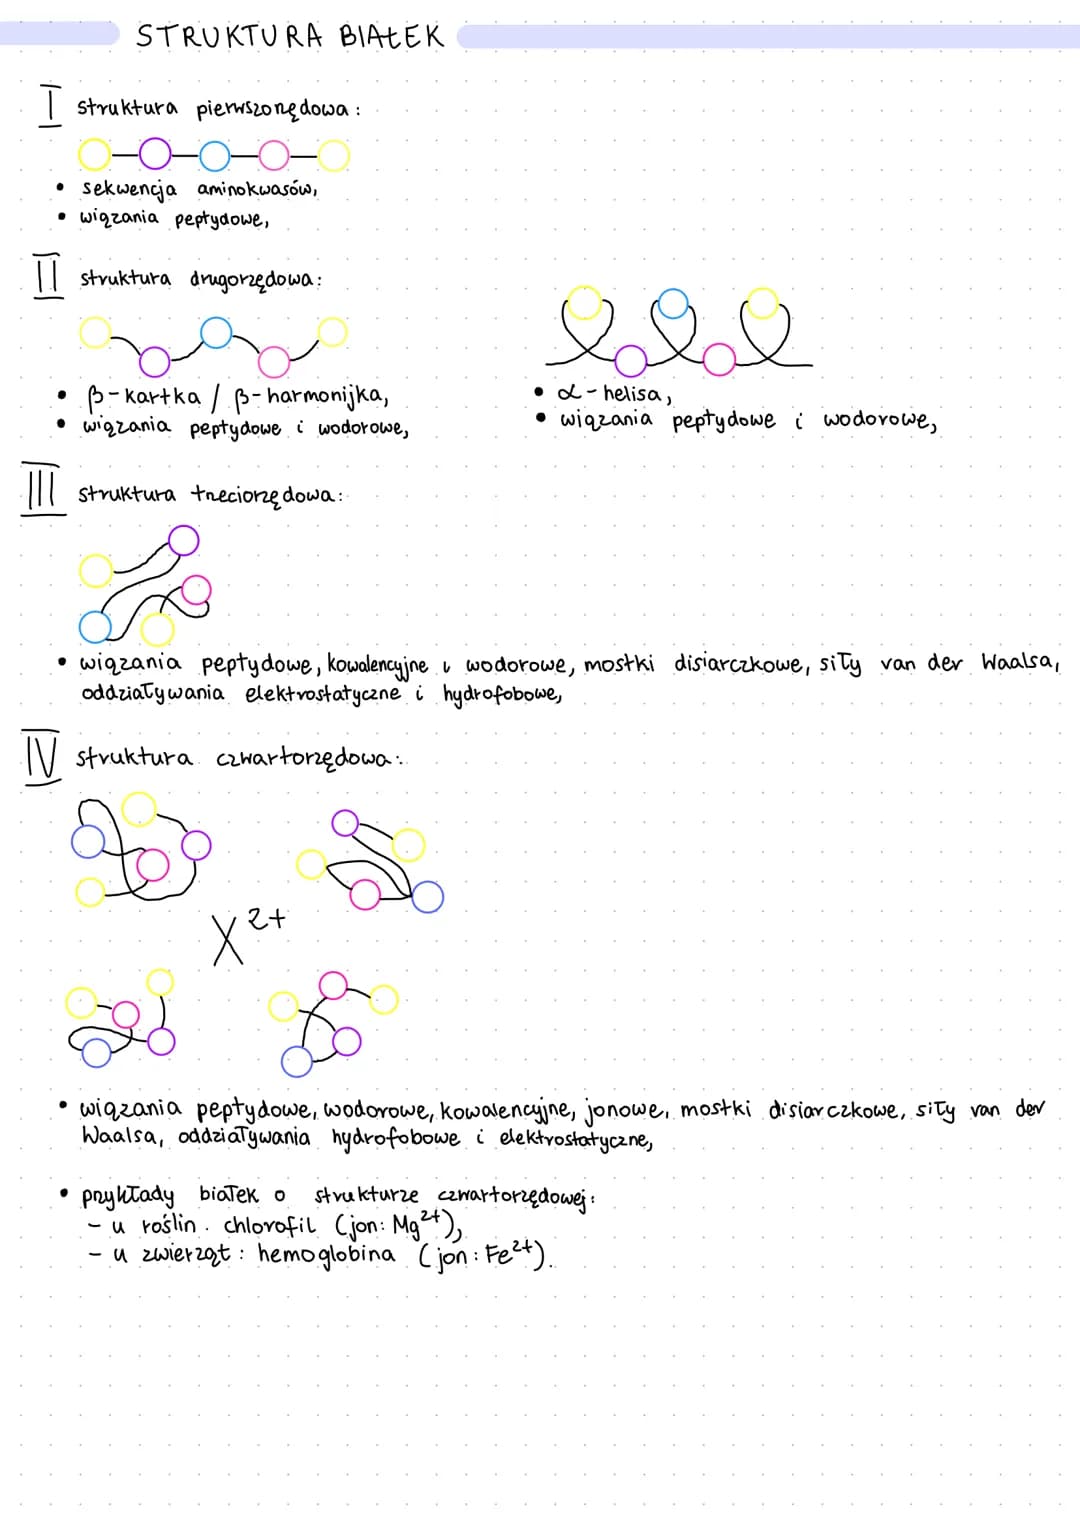 STRUKTURA BIAŁEK
I struktura pierwszorzędowa:
• sekwencja aminokwasów,
• wiązania peptydowe,
II struktura drugorzędowa:
• β-kartka / β-harmonijka,
• wiązania peptydowe i wodorowe,
• α-helisa,
• wiązania peptydowe i wodorowe,
III struktura trzeciorzędowa:
• wiązania peptydowe, kowalencyjne i wodorowe, mostki disiarczkowe, siły van der Waalsa,
oddziaływania elektrostatyczne i hydrofobowe,
IV struktura czwartorzędowa:
X²⁺
• wiązania peptydowe, wodorowe, kowalencyjne, jonowe, mostki disiarczkowe, siły van der
Waalsa, oddziaływania hydrofobowe i elektrostatyczne,
• przykłady białek o strukturze czwartorzędowej:
- u roślin: chlorofil (jon: Mg²⁺),
- u zwierząt: hemoglobina (jon: Fe²⁺).